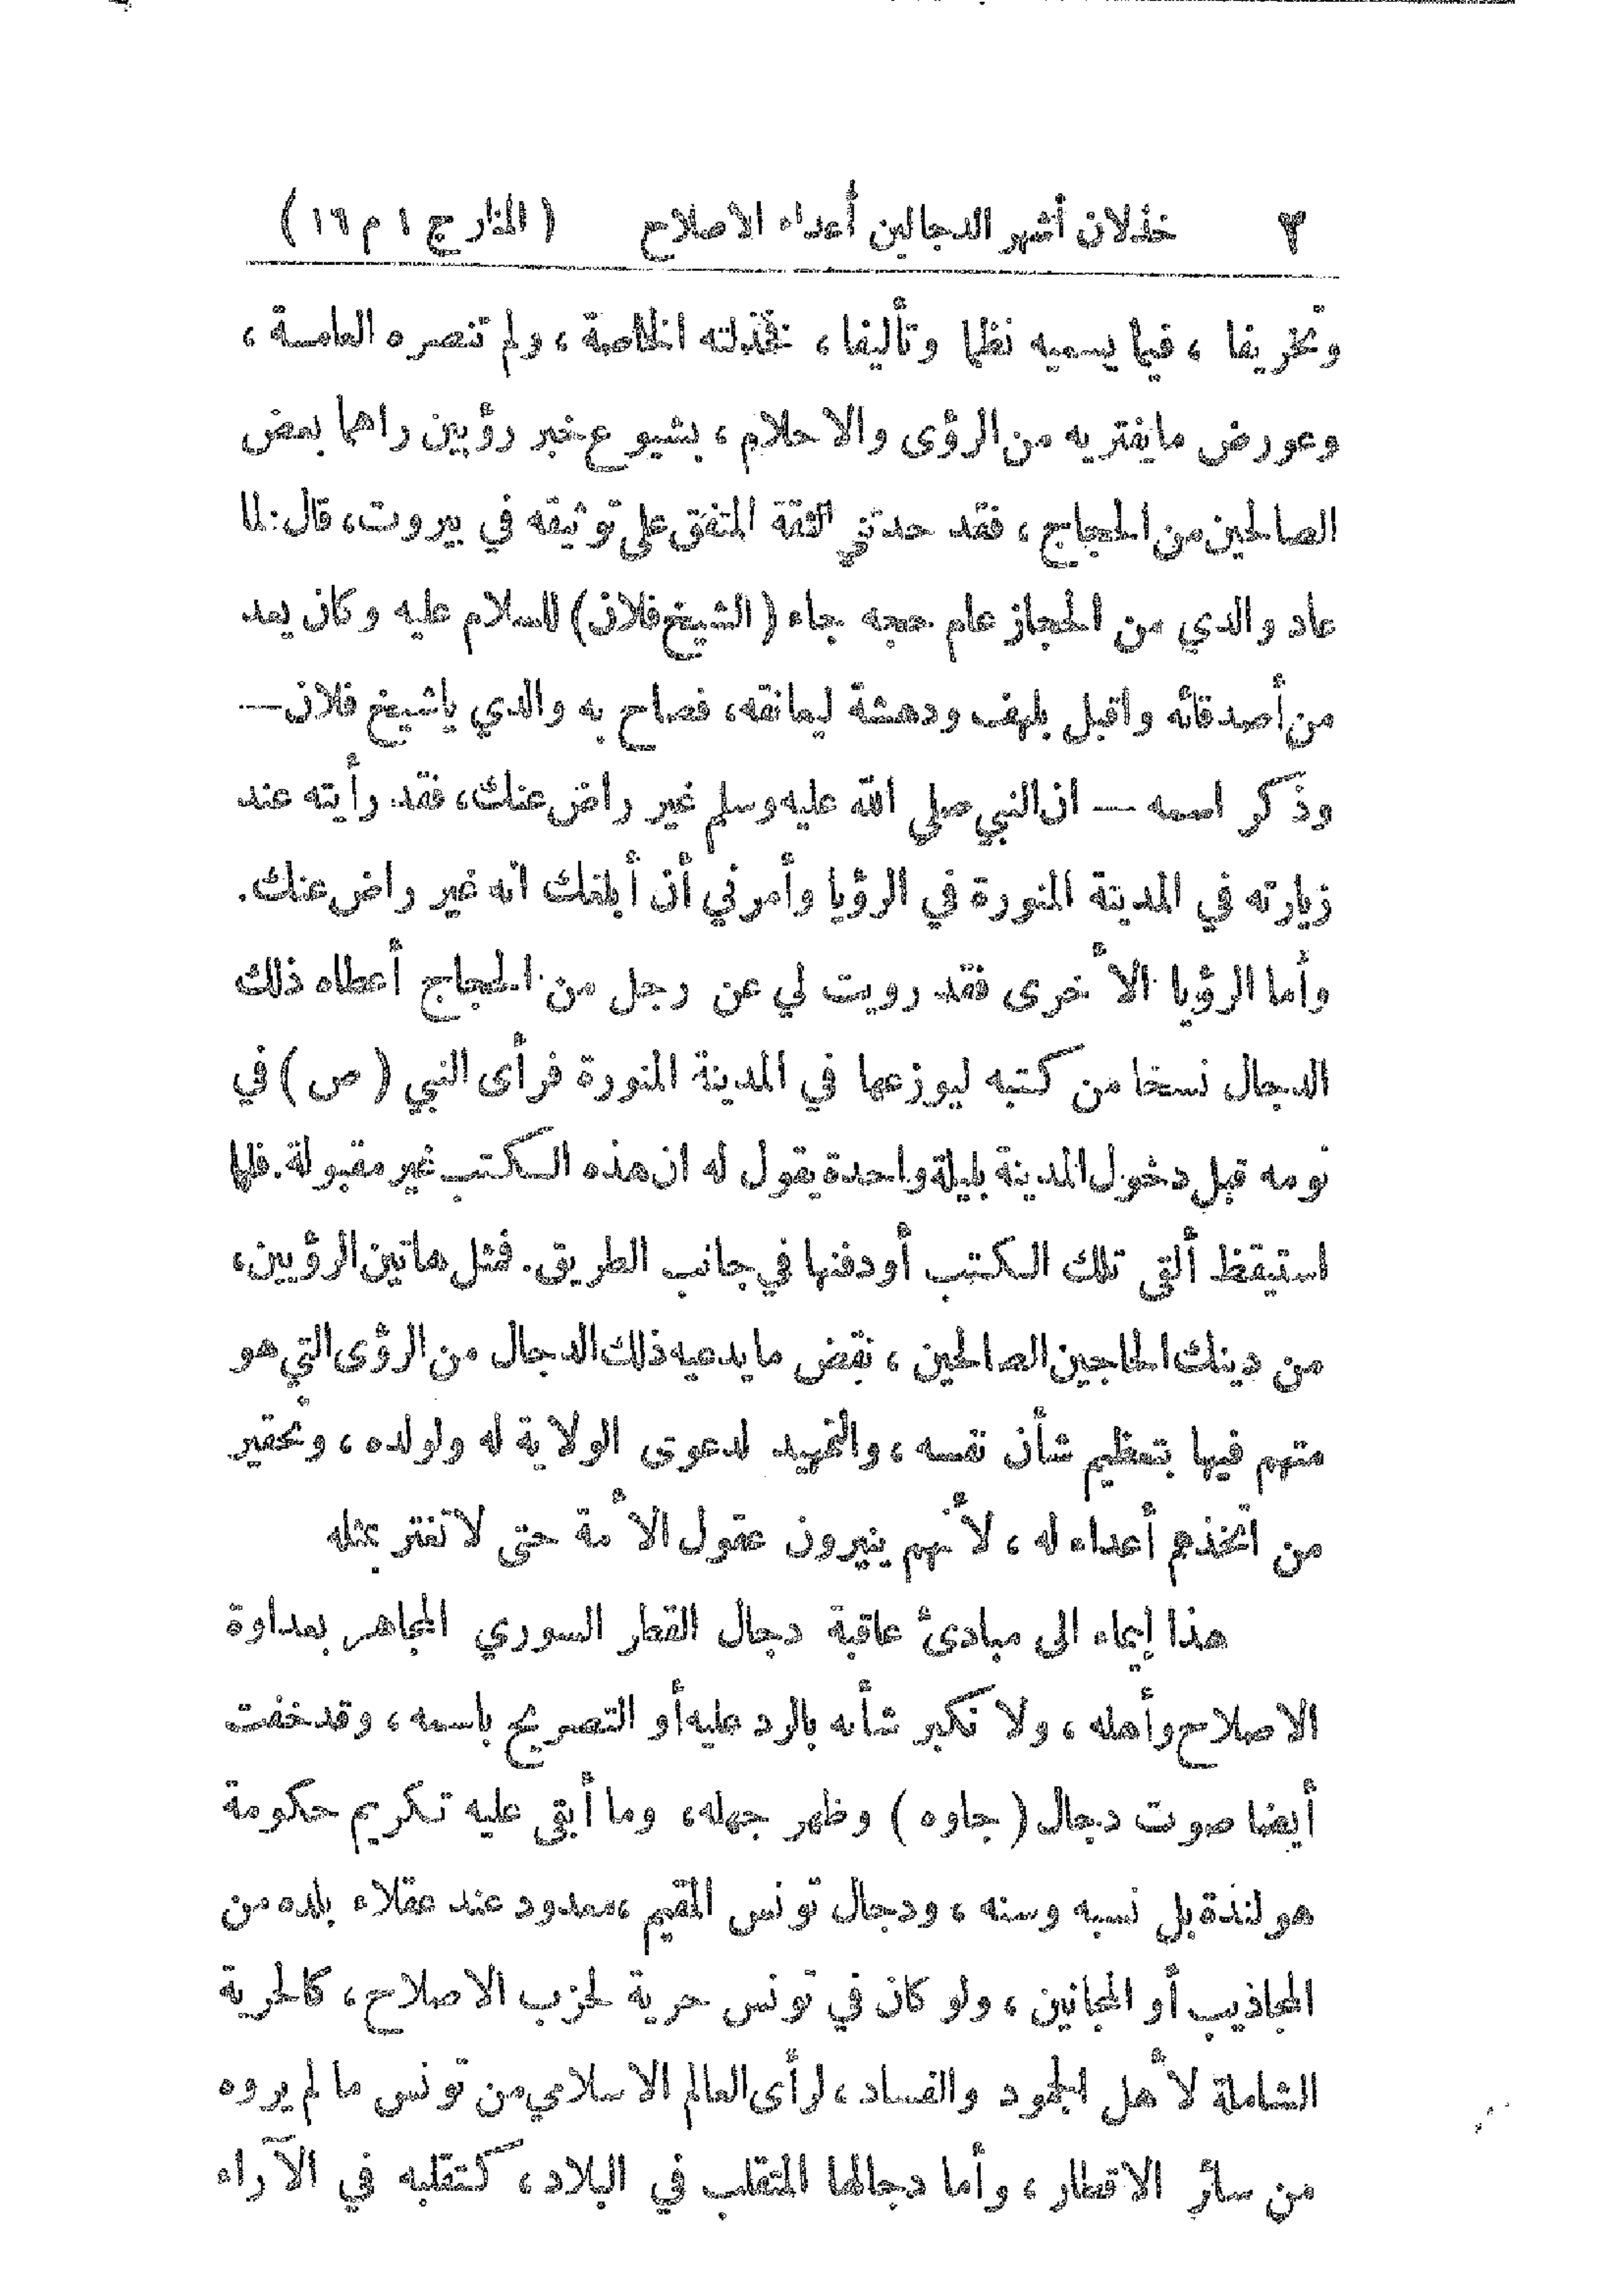 ٣ خذلان أشهر الدجالين أعداء الاصلاح ( المنار ج ١ م ١٦ )
وتخريفا ، فيما يسميه نظما وتأليفا ، نخذلته الخاصة ، ولم تنصره العامة ،
وعورض مايفتريه من الرؤى والاحلام ، بشيوع خبر رؤيين راهما بعض
الصالحين من الحجاج ، فقد حدثني الثقة المتفق على توثيقه في بيروت، قال: لما
عاد والدي من الحجاز عام حجه جاء ( الشيخ فلان) للسلام عليه وكان يعد
من أصدقائه واقبل بلهف ودهشة ليعانقه، فصاح به والدي ياشيخ فلان —
وذكر اسمه — ان النبي صلى الله عليه وسلم غير راض عنك، فقد رأيته عند
زيارته في المدينة المنورة في الرؤيا وأمرني أن أبلغك انه غير راض عنك.
وأما الرؤيا الأخرى فقد رويت لي عن رجل من الحجاج أعطاه ذلك
الدجال نسخا من كتبه ليوزعها في المدينة المنورة فرأى النبي ( ص ) في
نومه قبل دخول المدينة بليلة واحدة يقول له ان هذه الكتب غير مقبولة. فلما
استيقظ ألقى تلك الكتب أودفنها في جانب الطريق. فمثل هاتين الرؤيين،
من دينك الحاجين الصالحين ، نقض مايدعيه ذلك الدجال من الرؤى التي هو
متهم فيها بتعظيم شأن نفسه ، والتمهيد لدعوى الولاية له ولولده ، وتحقير
من اتخذهم أعداء له ، لأنهم ينيرون عقول الأمة حتى لا تغتر بمثله
هذا إيماء الى مبادئ عاقبة دجال القطر السوري المجاهر بعداوة
الاصلاح وأهله ، ولا نكبر شأنه بالرد عليه أو التصريح باسمه ، وقد خفت
أيضا صوت دجال ( جاوه ) وظهر جهله، وما أبقى عليه تكريم حكومة
هولندة بل نسبه وسنه ، ودجال تونس المقيم ،معدود عند عقلاء بلده من
المجاذيب أو المجانين ، ولو كان في تونس حرية لحزب الاصلاح ، كالحرية
الشاملة لأهل الجمود والفساد ، لرأى العالم الاسلامي من تونس ما لم يروه
من سائر الاقطار ، وأما دجالها المتقلب في البلاد ، كتقلبه في الآراء